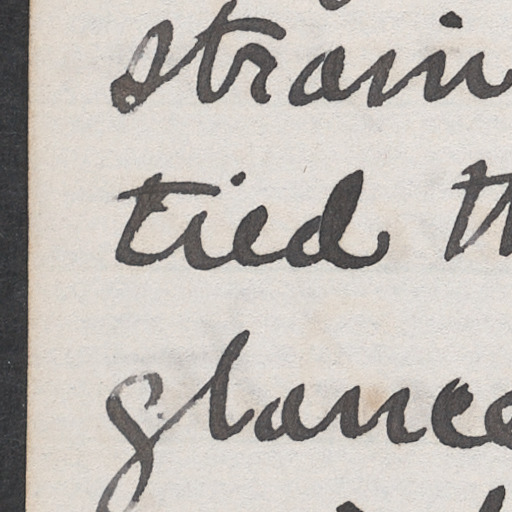 strain
tied th
glance